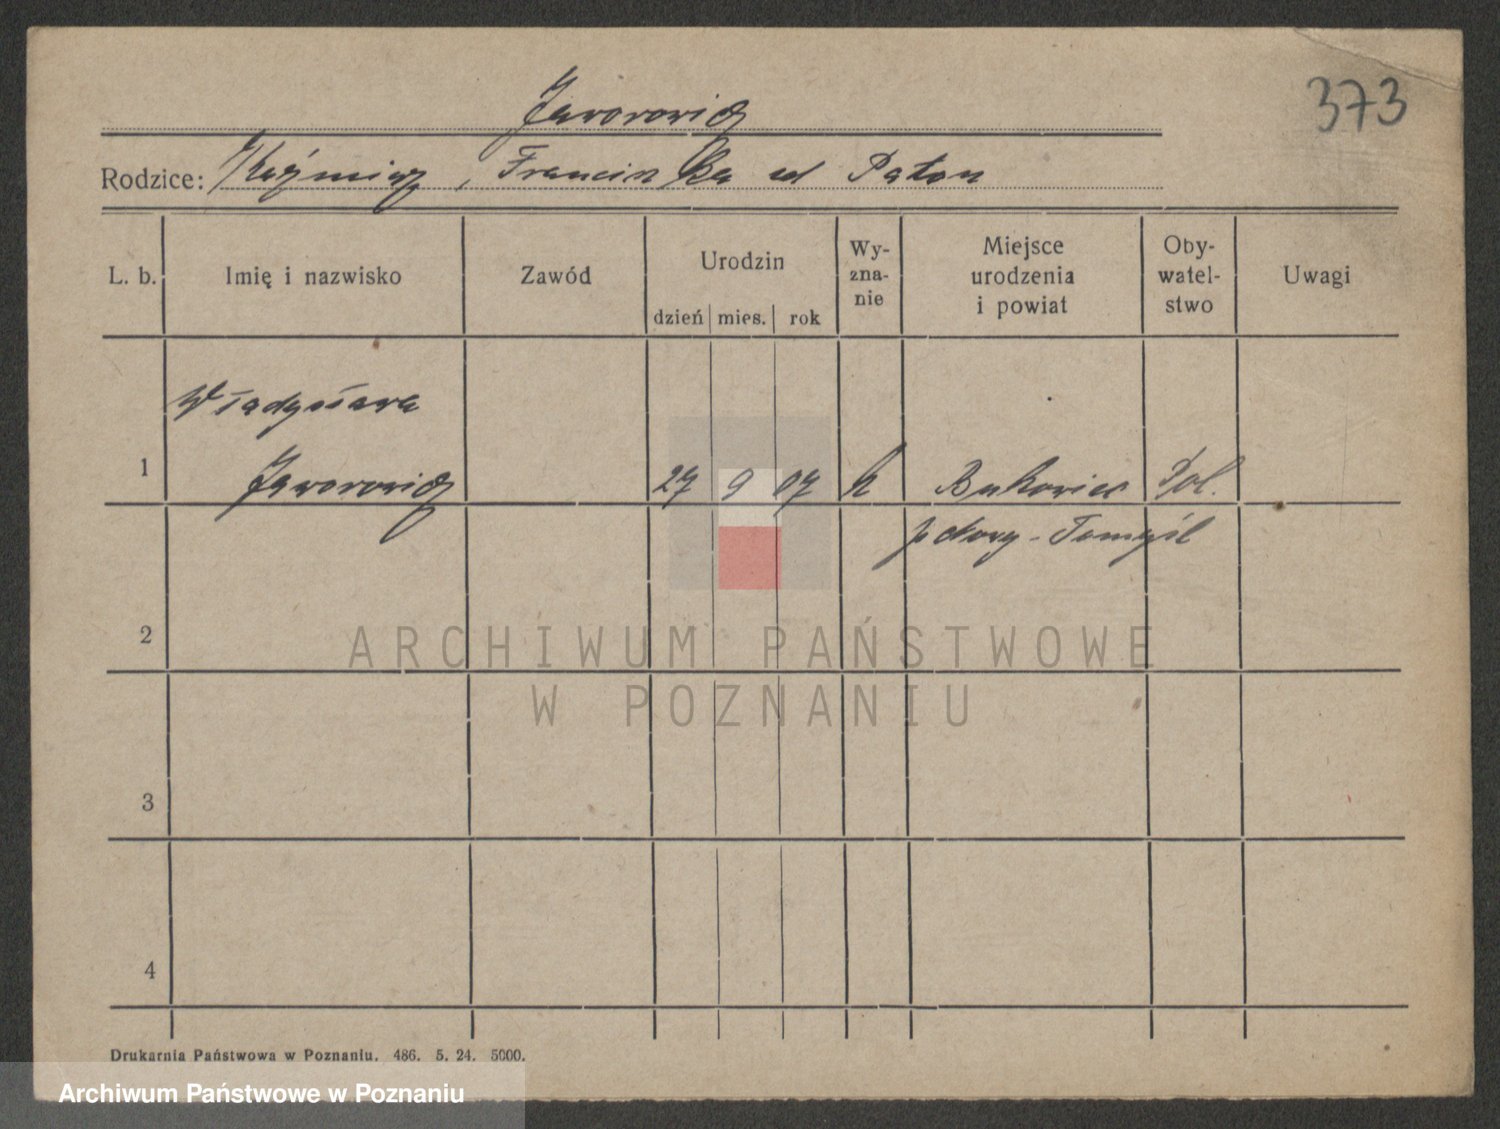 373
Jaworowicz
Rodzice: Kaźmierz, Franciszka
L. b. Imię i nazwisko Zawód Urodzin dzień mies. rok Wy-zna-nie Miejsce urodzenia i powiat Oby-watel-stwo Uwagi
Władysława
1 Jaworowicz 27 9 07 k Bukowiec Pol.
p Nowy-Tomyśl
2
ARCHIWUM PAŃSTWOWE
W POZNANIU
3
4
Drukarnia Państwowa w Poznaniu. 486. 5. 24. 5000.
Archiwum Państwowe w Poznaniu